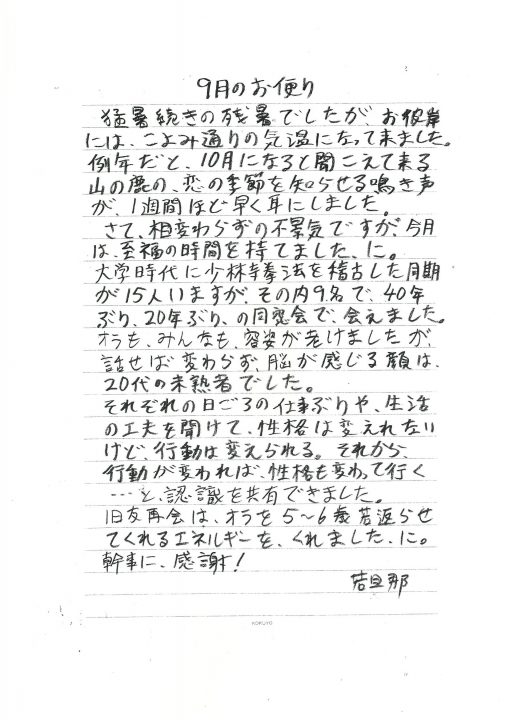 9月のお便り
猛暑続きの残暑でしたが、お彼岸
には、こよみ通りの気温になって来ました。
例年だと、10月になると聞こえて来る
山の鹿の、恋の季節を知らせる鳴き声
が、1週間ほど早く耳にしました。
さて、相変わらずの不景気ですが、今月
は、至福の時間を持てました、に。
大学時代に少林寺拳法を稽古した同期
が15人いますが、その内9名で、40年
ぶり、20年ぶり、の同窓会で、会えました。
オラも、みんなも、容姿が老けましたが、
話せば変わらず、脳が感じる顔は、
20代の未熟者でした。
それぞれの日ごろの仕事ぶりや、生活
の工夫を聞けて、性格は変えれない
けど、行動は変えられる。それから、
行動が変われば、性格も変わって行く
…と、認識を共有できました。
旧友再会は、オラを5〜6歳若返らせ
てくれるエネルギーを、くれました、に。
幹事に、感謝!
若旦那
KOKUYO